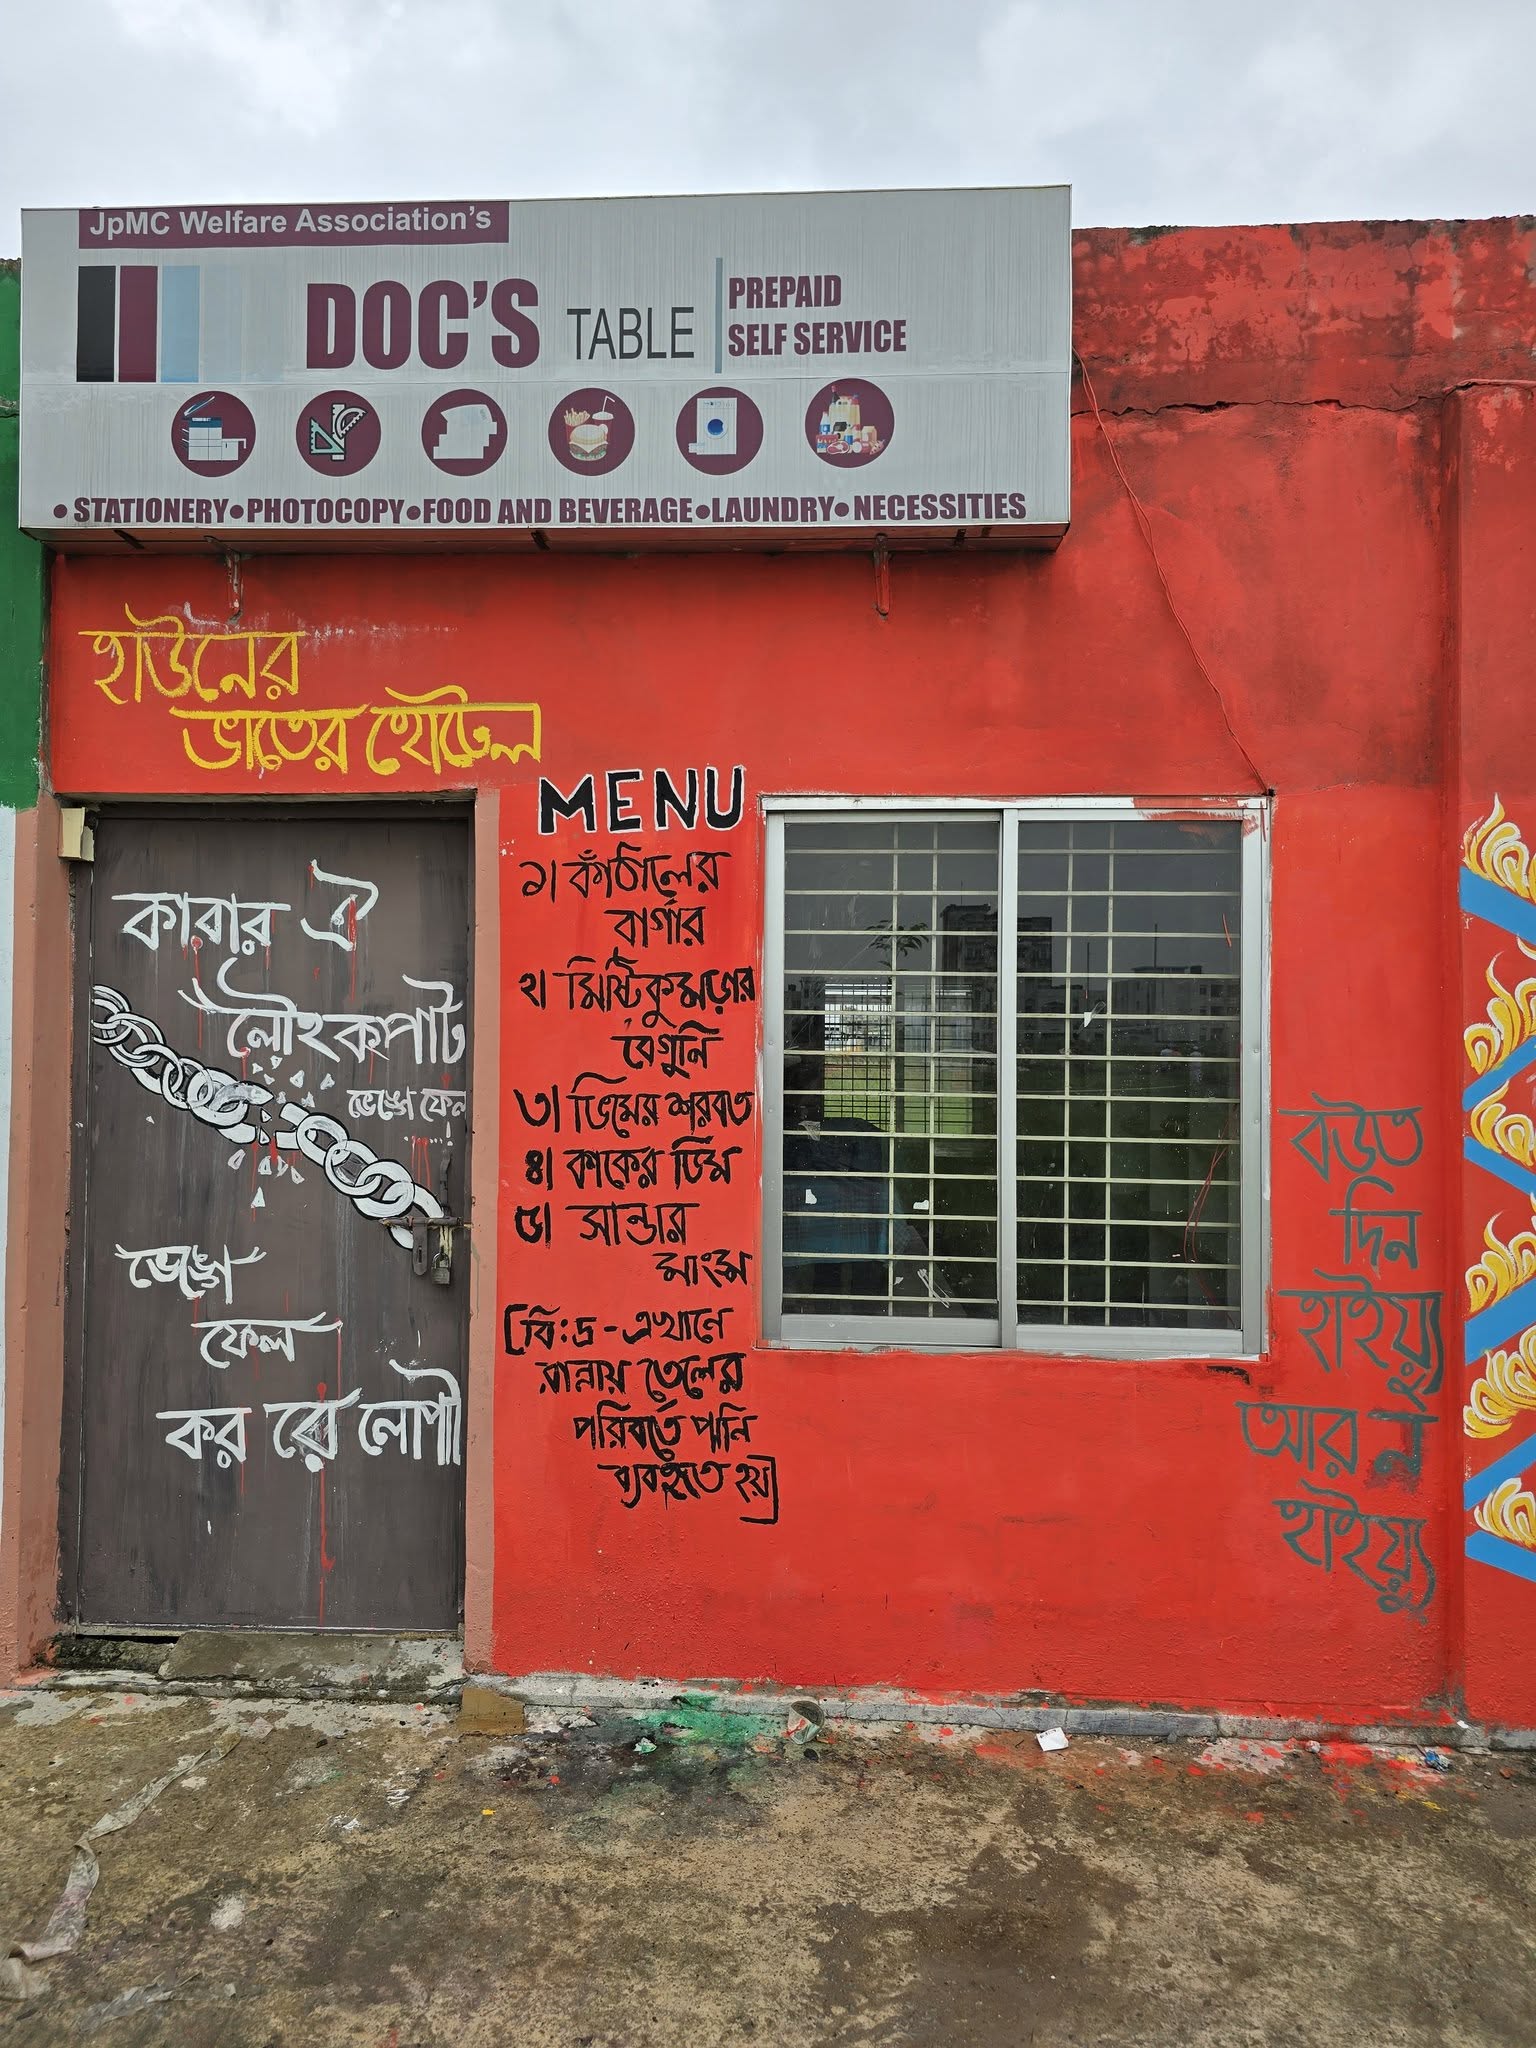 JpMC Welfare Association's
DOC'S TABLE
PREPAID
SELF SERVICE
• STATIONERY • PHOTOCOPY • FOOD AND BEVERAGE • LAUNDRY • NECESSITIES
হাউনের
ভাতের হোটেল
কারার ঐ
লৌহকপাট
ভেঙ্গে ফেল
ভেঙ্গে
ফেল
কর রে লোপী
MENU
১। কাঁঠালের
বার্গার
২। মিষ্টিকুমড়ার
বেগুনি
৩। ডিমের শরবত
৪। কাকের ডিম
৫। সান্ডার
মাংস
[বি:দ্র - এখানে
রান্নায় তেলের
পরিবর্তে পানি
ব্যবহৃত হয়]
বউত
দিন
হাইয়্যু
আর ন
হাইয়্যু